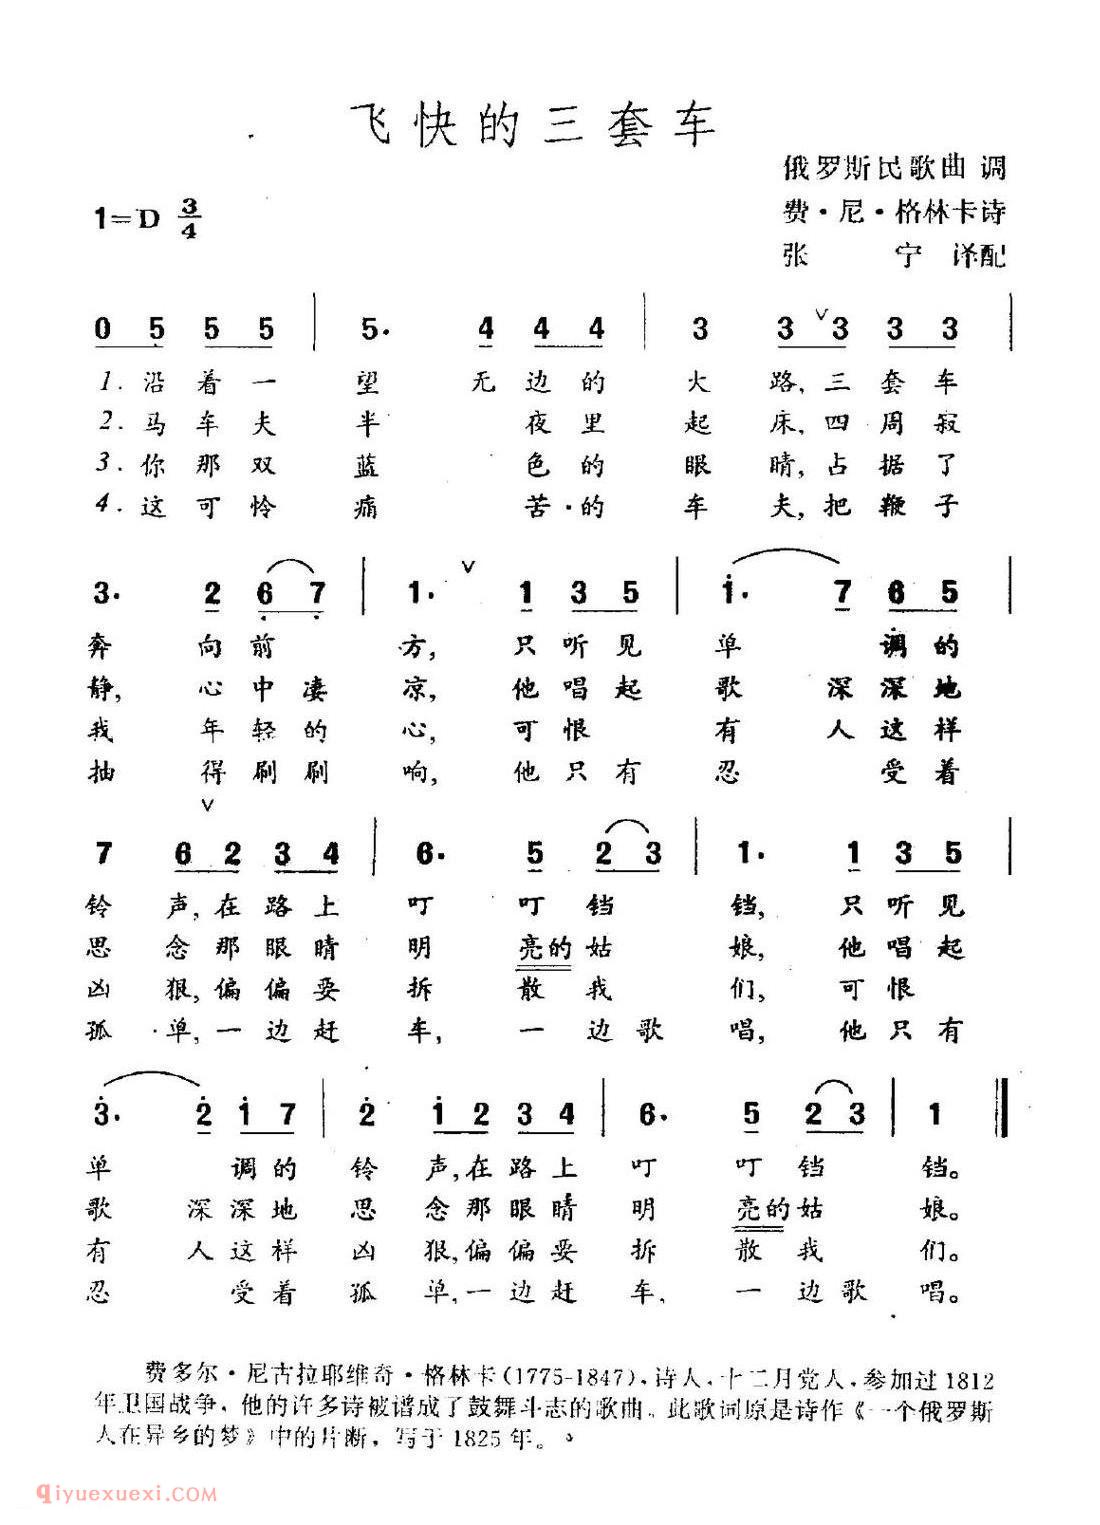 飞快的三套车
俄罗斯民歌曲 调
费·尼·格林卡诗
1=D 3/4
张 宁 译配
0 5 5 5 | 5. 4 4 4 | 3 3 ∨ 3 3 3 |
1. 沿着一望 无边的大路, 三套车
2. 马车夫半 夜里起床, 四周寂
3. 你那双蓝 色的眼睛, 占据了
4. 这可怜痛 苦·的车夫, 把鞭子
3. 2 6 7 | 1. ∨ 1 3 5 | 1. 7 6 5
奔 向前 方, 只听见单 调的
静, 心中凄凉, 他唱起歌 深深地
我 年轻的心, 可恨 有 人这样
抽 得刷刷响, 他只有忍 受着
∨
7 6 2 3 4 | 6. 5 2 3 | 1. 1 3 5 |
铃 声, 在路上叮 叮铛 铛, 只听见
思 念那眼睛明 亮的姑 娘, 他唱起
凶 狠, 偏偏要拆 散我 们, 可恨
孤 单, 一边赶车, 一边歌唱, 他只有
3. 2 1 7 | 2 1 2 3 4 | 6. 5 2 3 | 1
单 调的铃 声, 在路上叮 叮铛 铛。
歌 深深地思 念那眼睛明 亮的姑 娘。
有 人这样凶 狠, 偏偏要拆 散我 们。
忍 受着孤 单, 一边赶车, 一边歌唱。
费多尔·尼古拉耶维奇·格林卡(1775-1847), 诗人, 十二月党人, 参加过1812
年卫国战争, 他的许多诗被谱成了鼓舞斗志的歌曲。此歌词原是诗作《一个俄罗斯
人在异乡的梦》中的片断, 写于1825年。
qiyuexuexi.COM